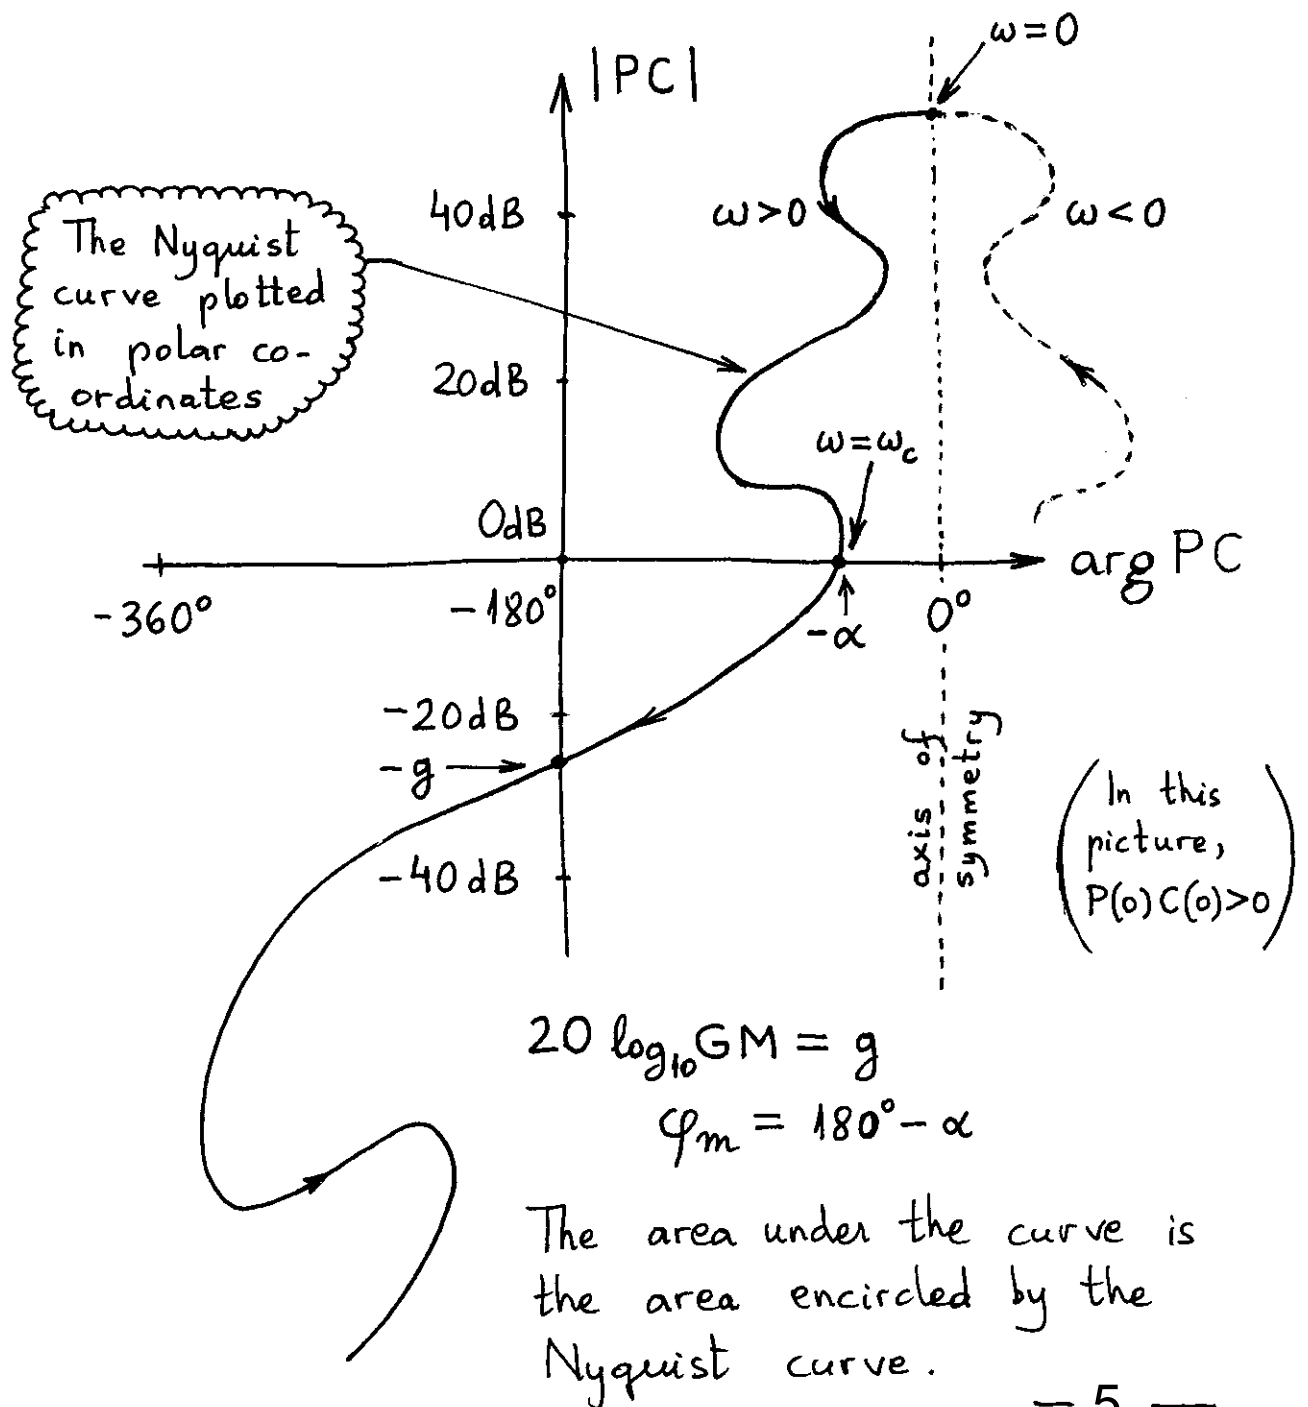 ω=0
|PC|
40dB
ω>0
ω<0
The Nyquist
curve plotted
in polar co-
ordinates
20dB
ω=ω_c
0dB
arg PC
-360°
-180°
-α
0°
-20dB
-g
-40dB
axis of
symmetry
(In this
picture,
P(0)C(0)>0)
20 log₁₀GM = g
φ_m = 180° - α
The area under the curve is
the area encircled by the
Nyquist curve.
— 5 —